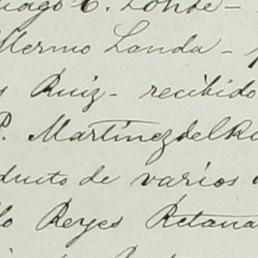 tiago C. Londe-
llermo Landa-
s Ruiz- recibido
P. Martinez del Ri
ducto de varios
lo Reyes Retana